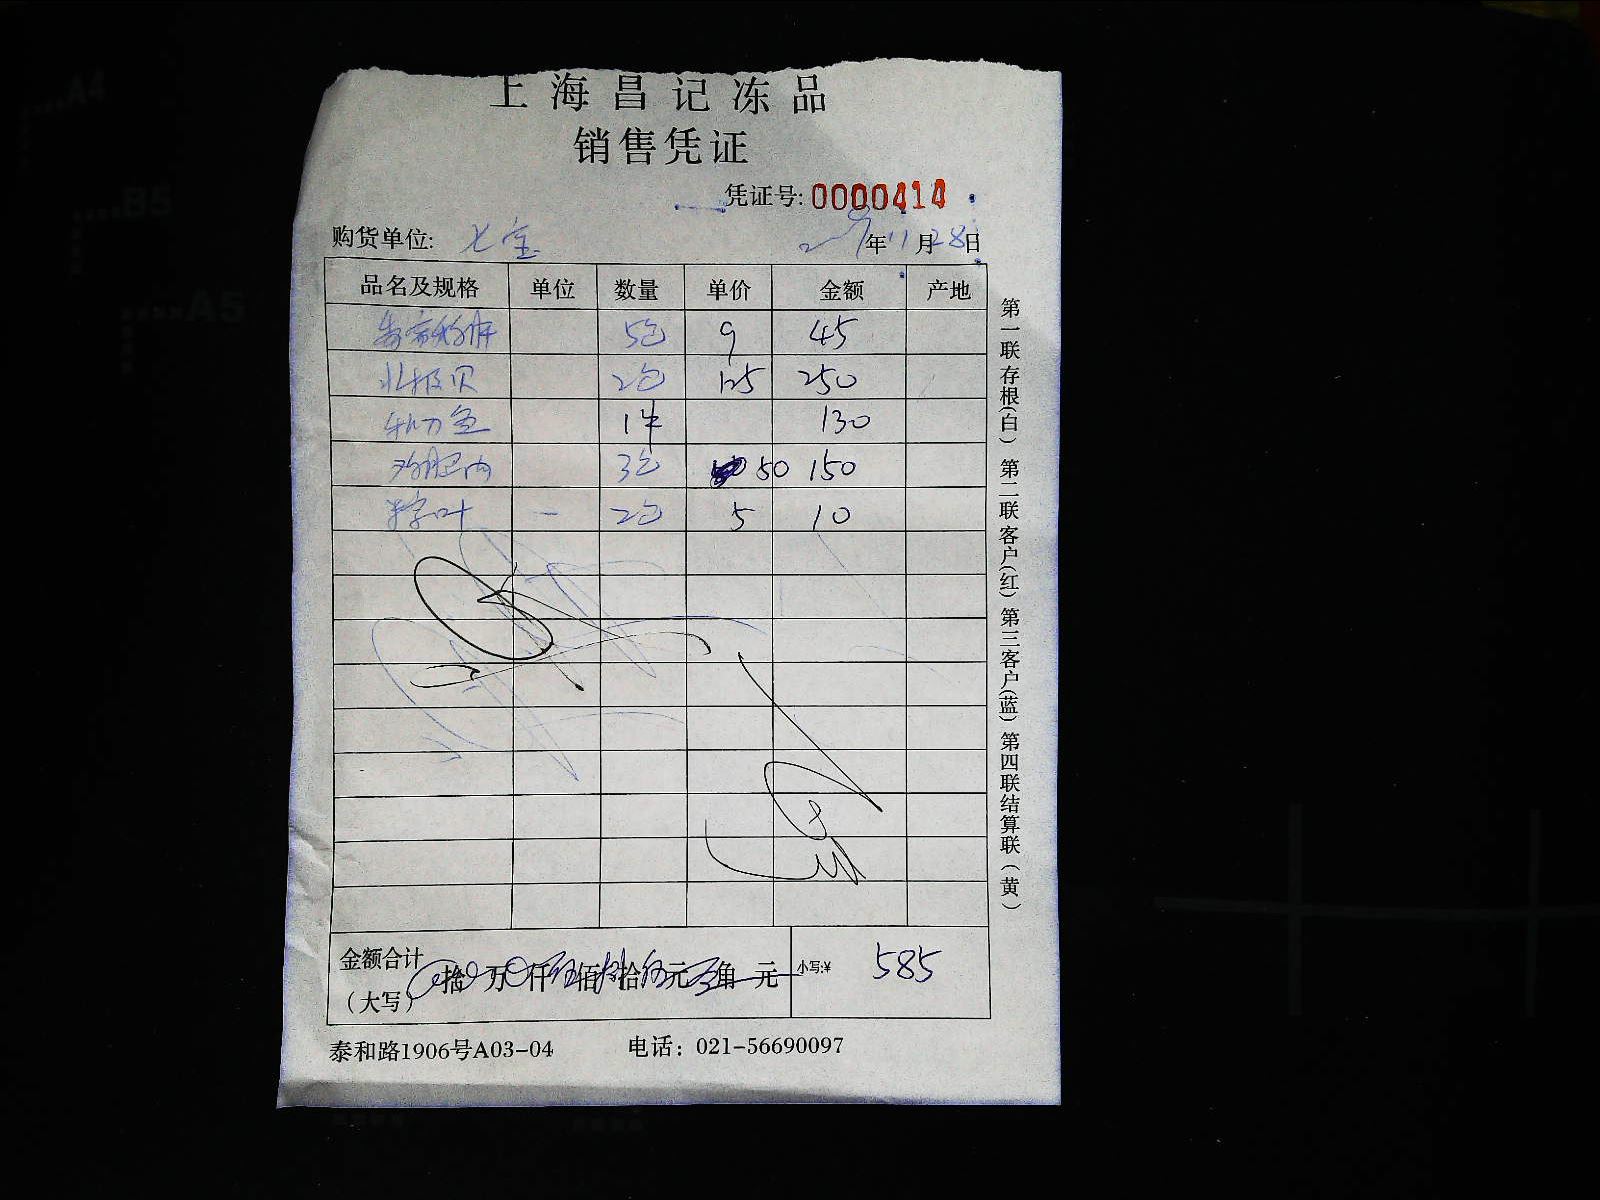 上海昌记冻品
销售凭证
凭证号: 0000414
购货单位: 七宝 年11月28日
品名及规格 单位 数量 单价 金额 产地
5包 9 45
北极贝 2包 125 250
秋刀鱼 1件 130
3包 50 150
粽叶 — 2包 5 10
金额合计（大写） 拾 万 仟 伍佰 捌拾 伍元 角 元 小写:¥ 585
泰和路1906号A03-04 电话：021-56690097
第一联存根(白) 第二联客户(红) 第三客户(蓝) 第四联结算联(黄)
A4
B5
A5